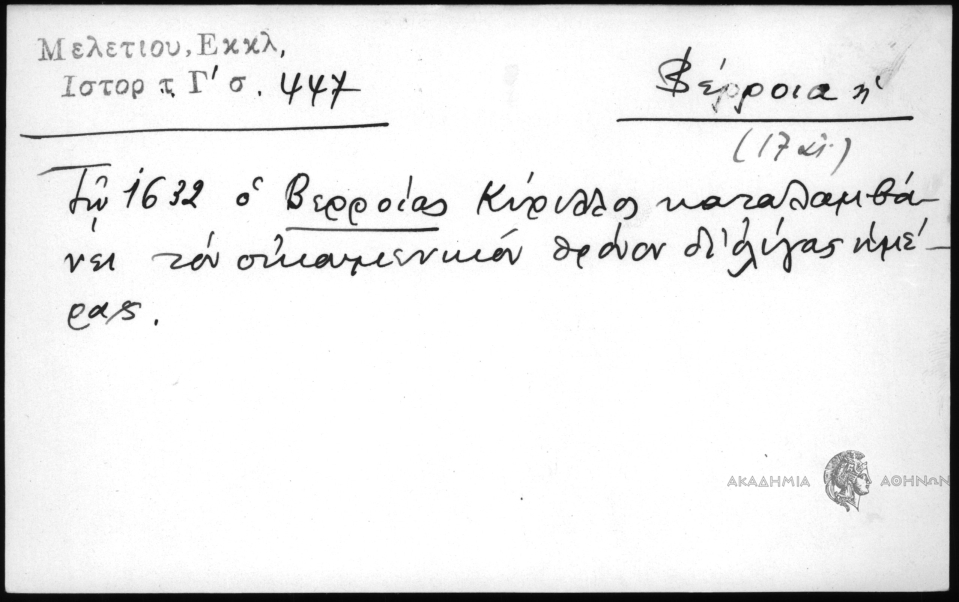 Μελετιου, Εκκλ,
Ιστορ τ. Γ' σ. 447
Βέρροια ἡ
(17 αι.)
Τῷ 1632 ὁ Βερροίας Κύριλλος καταλαμβά-
νει τόν οἰκουμενικόν θρόνον δι' ὀλίγας ἡμέ-
ρας.
ΑΚΑΔΗΜΙΑ ΑΘΗΝΩΝ